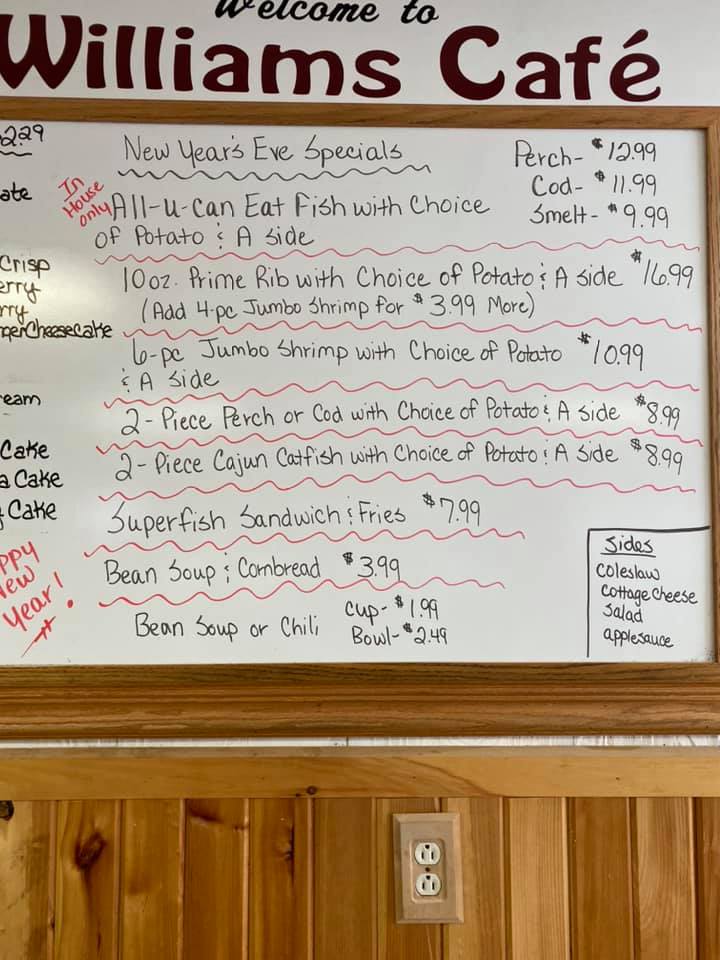 Welcome to
Williams Café
2.29
New Year's Eve Specials
Perch- $12.99
Cod- $11.99
Smelt- $9.99
In House only
All-u-can Eat Fish with Choice
of Potato & A side
10oz. Prime Rib with Choice of Potato & A side $16.99
(Add 4-pc Jumbo Shrimp for $3.99 More)
6-pc Jumbo Shrimp with Choice of Potato $10.99
& A side
2-Piece Perch or Cod with Choice of Potato & A side $8.99
2-Piece Cajun Catfish with Choice of Potato & A side $8.99
Superfish Sandwich & Fries $7.99
Bean Soup & Cornbread $3.99
Bean Soup or Chili
Cup- $1.99
Bowl- $2.49
Sides
Coleslaw
Cottage Cheese
Salad
applesauce
ate
Crisp
erry
rry
Cheesecake
eam
Cake
a Cake
Cake
ppy
New
Year!